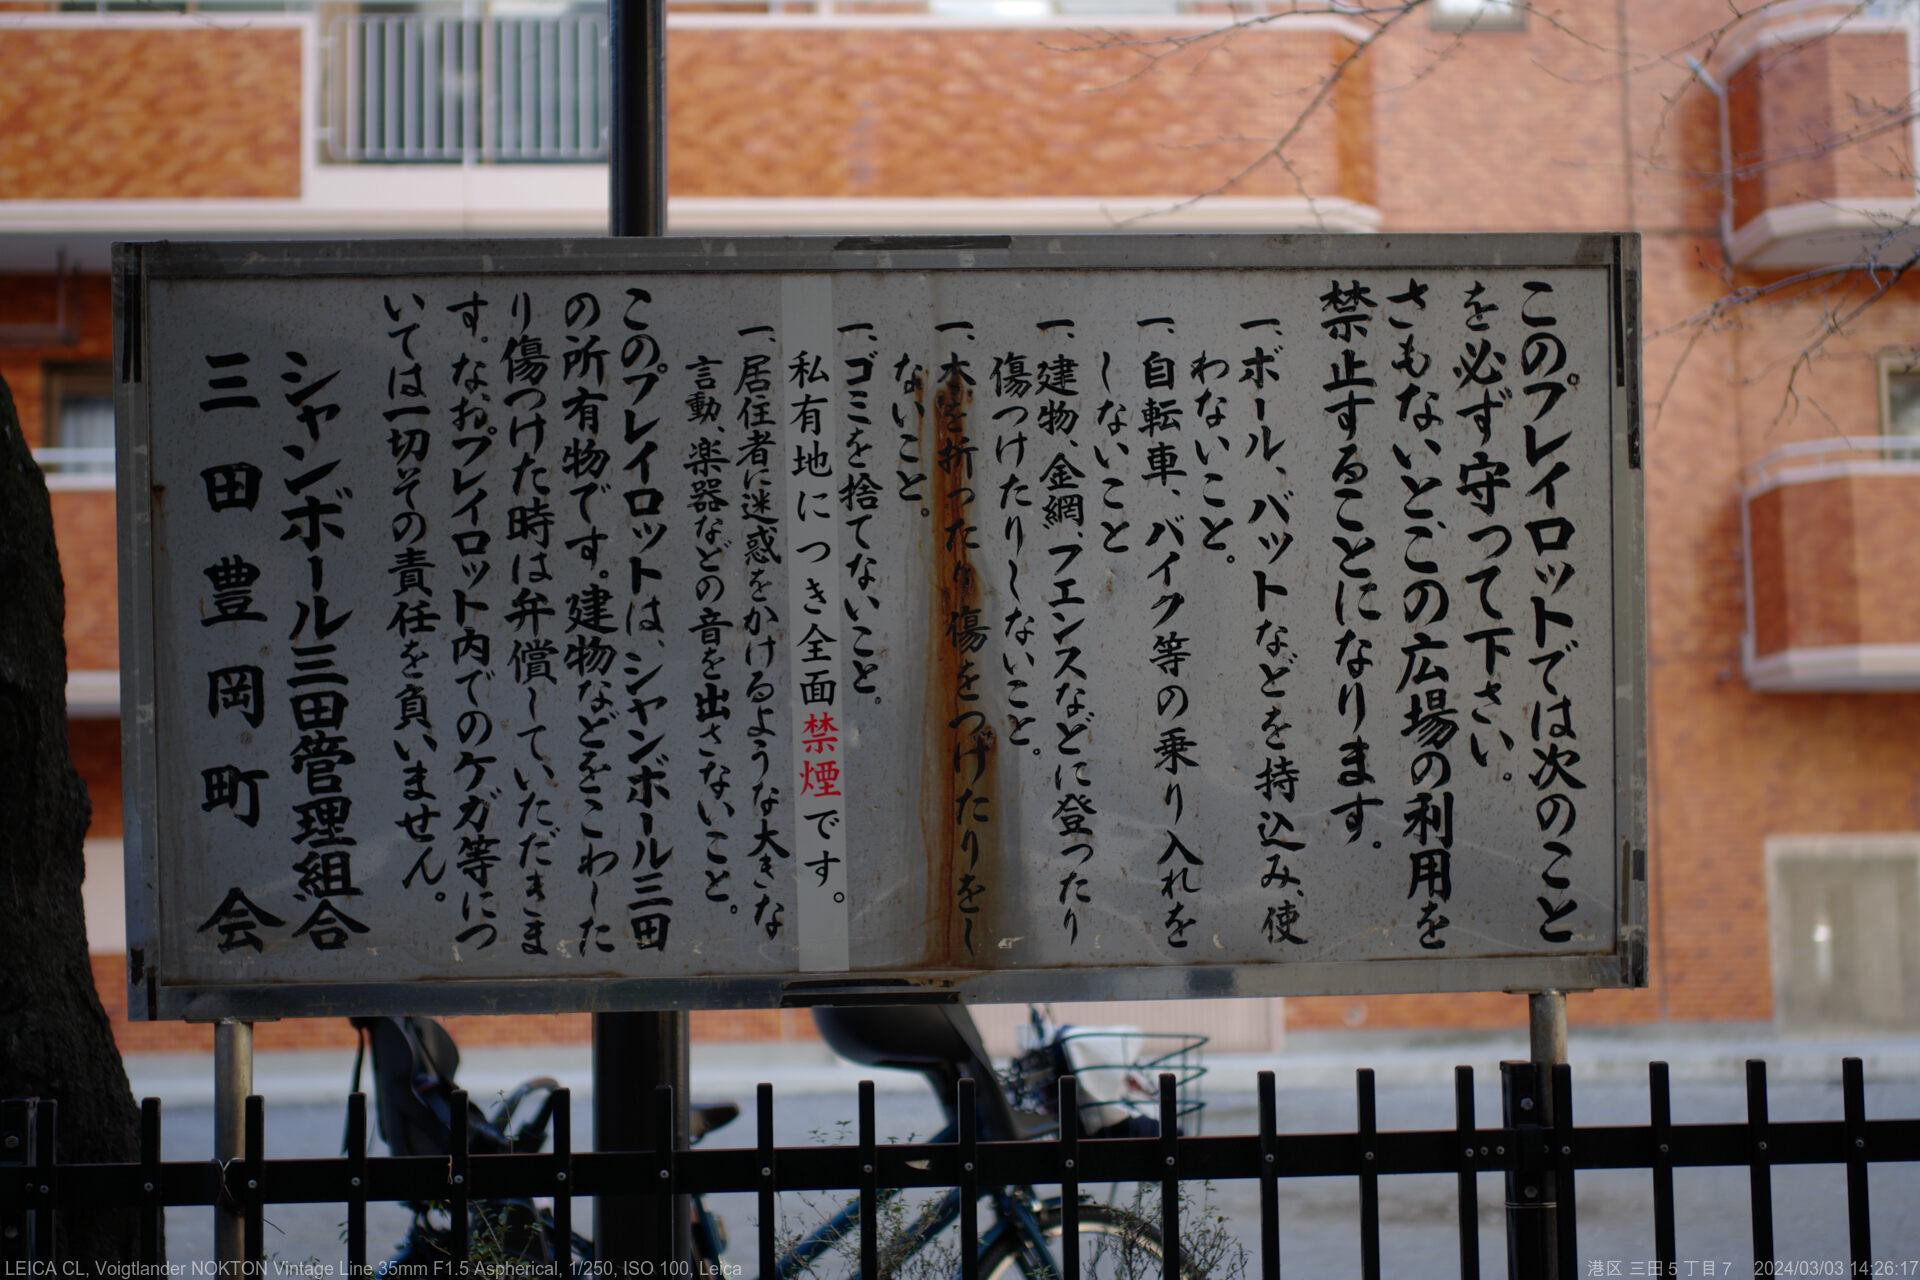 このプレイロットでは次のこと
を必ず守って下さい。
さもないとこの広場の利用を
禁止することになります。
一、ボール、バットなどを持込み、使
わないこと。
一、自転車、バイク等の乗り入れを
しないこと
一、建物、金網、フエンスなどに登ったり
傷つけたりしないこと。
一、木を折ったり傷をつけたりをし
ないこと。
一、ゴミを捨てないこと。
私有地につき全面禁煙です。
一、居住者に迷惑をかけるような大きな
言動、楽器などの音を出さないこと。
このプレイロットは、シャンボール三田
の所有物です。建物などをこわした
り傷つけた時は弁償していただきま
す。なおプレイロット内でのケガ等につ
いては一切その責任を負いません。
シャンボール三田管理組合
三田豊岡町会
LEICA CL, Voigtlander NOKTON Vintage Line 35mm F1.5 Aspherical, 1/250, ISO 100, Leica
港区 三田５丁目７ 2024/03/03 14:26:17